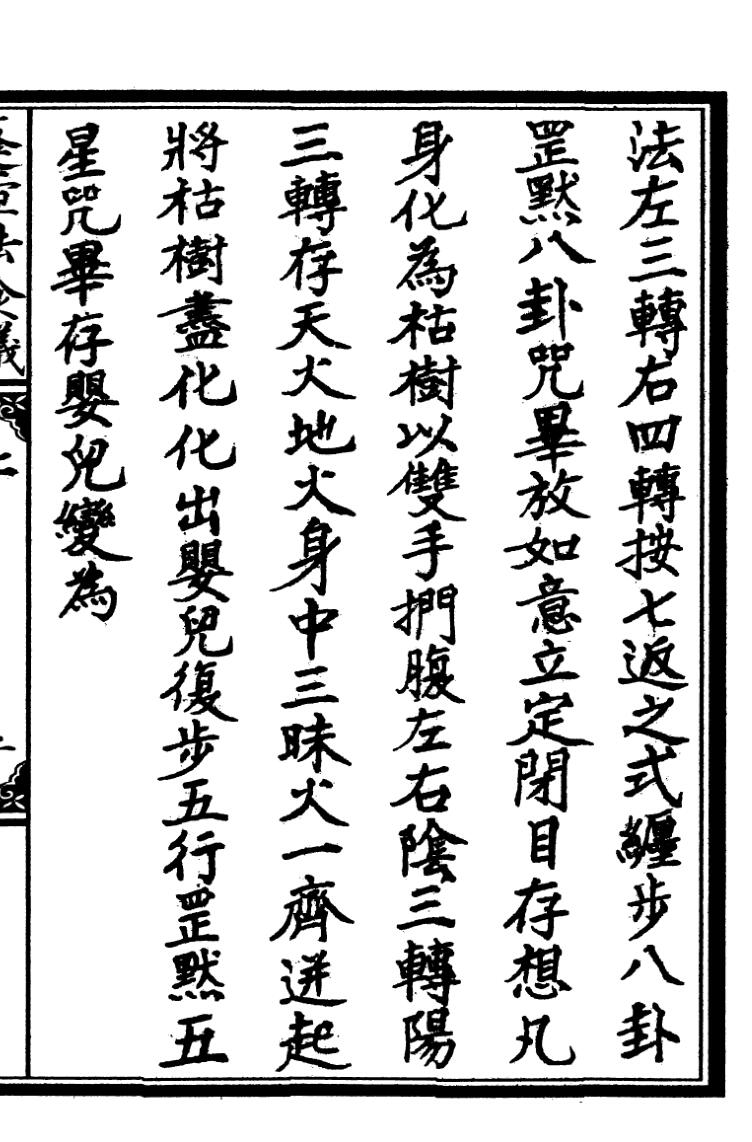 法左三轉右四轉按七返之式纏步八卦
罡黙八卦咒畢放如意立定閉目存想凡
身化為枯樹以雙手捫腹左右陰三轉陽
三轉存天火地火身中三昧火一齊迸起
將枯樹盡化化出嬰兒復步五行罡黙五
星咒畢存嬰兒變為